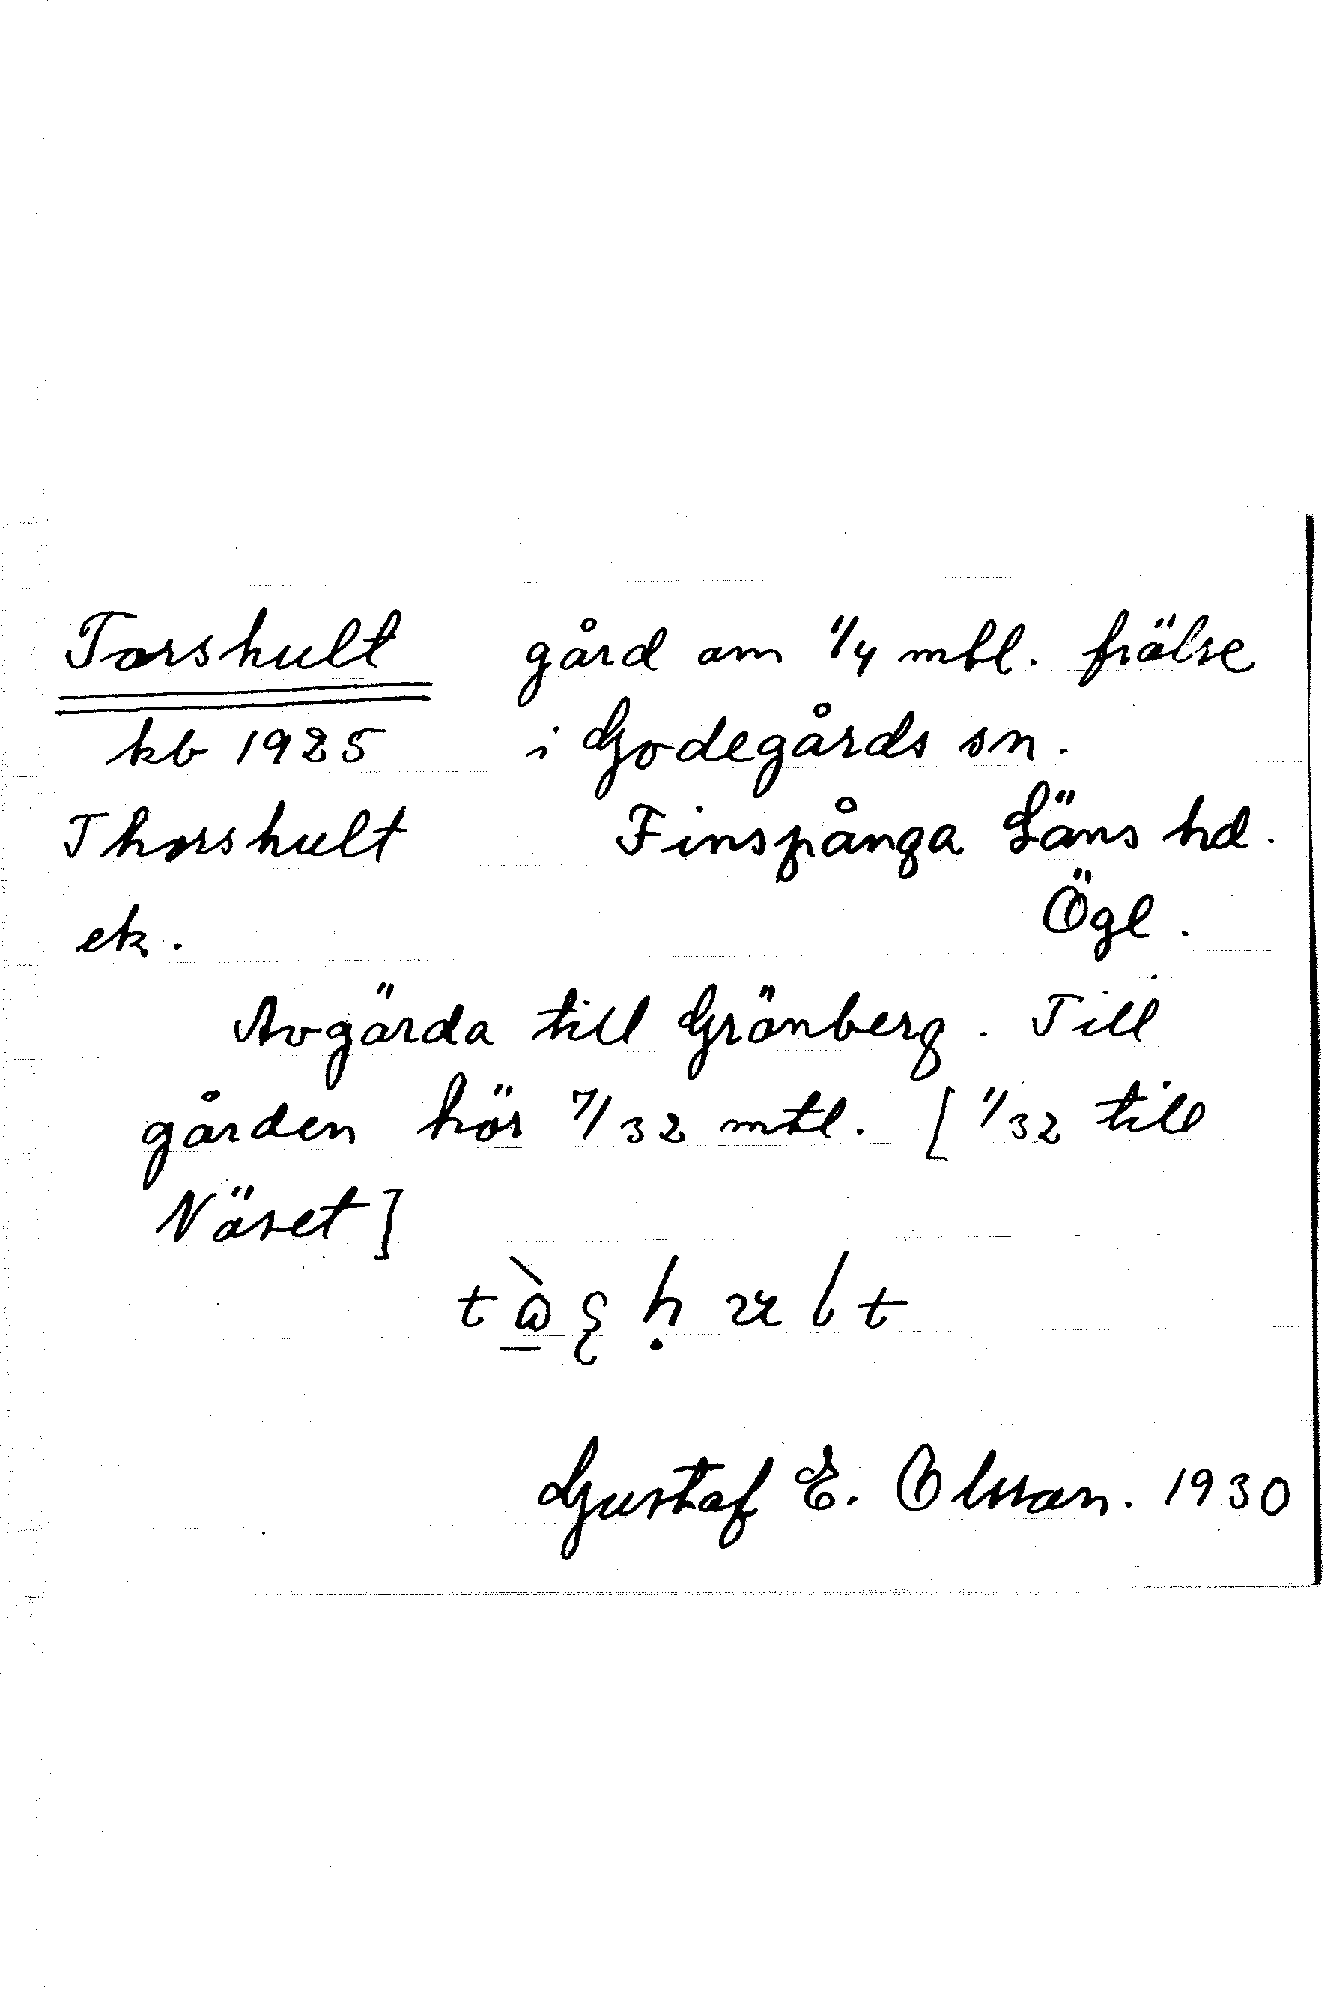 Torshult gård om 1/4 mtl. frälse
kb 1925 i Godegårds sn.
Thorshult Finspånga Läns hd.
ek. Ögl.
Avgärda till Grönberg. Till
gården hör 7/32 mtl. [1/32 till
Näset]
Gustaf E. Olsson. 1930